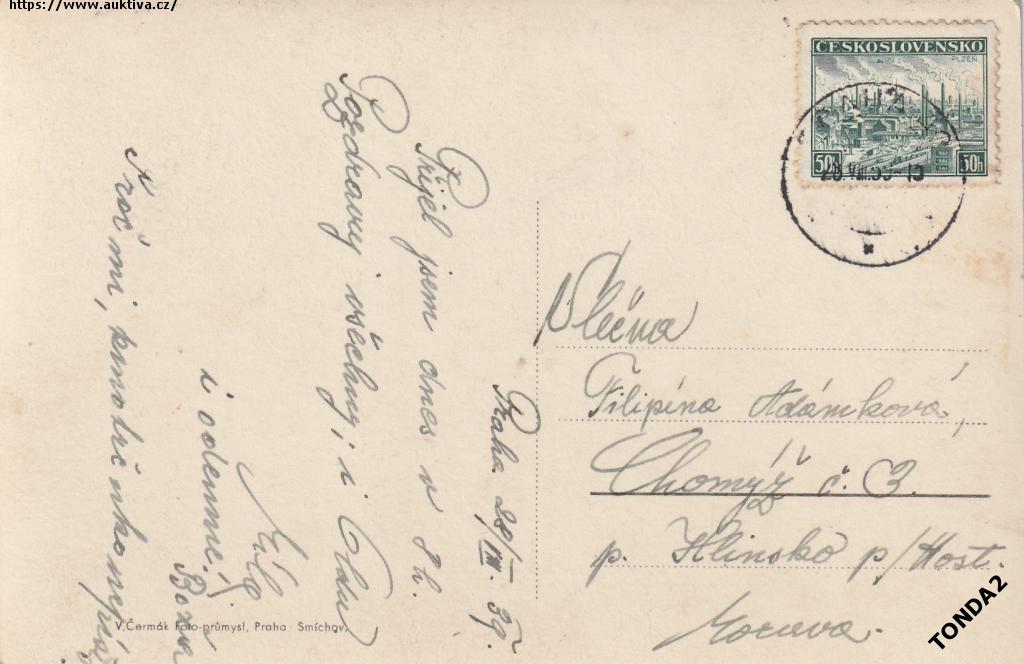 https://www.auktiva.cz/
ČESKOSLOVENSKO
PLZEŇ
50h 50h
Praha 28/VIII. 39.
Přijel jsem dnes v 8 h.
Pozdravuj všechny, i Oldu
i odemne!
Slečna
Filipína Adámková,
Chomýž č. 3.
p. Hlinsko p/Host.
Morava.
V. Čermák Foto-průmysl, Praha - Smíchov.
TONDA2